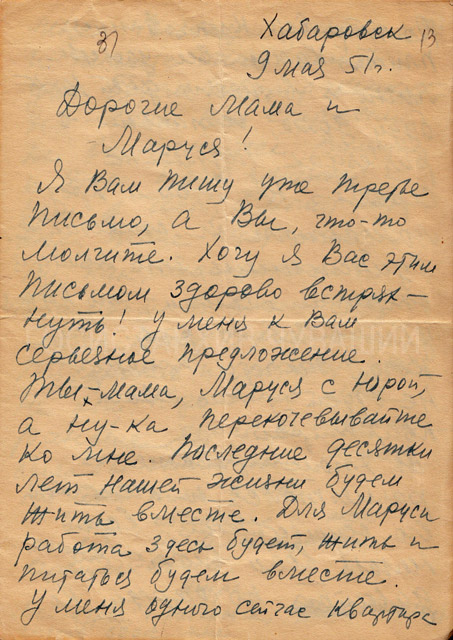 31
Хабаровск 13
9 мая 51г.
Дорогие Мама и
Маруся!
Я Вам пишу уже третье
письмо, а Вы, что-то
молчите. Хочу я Вас этим
письмом здорово встрях-
нуть! У меня к Вам
серьезное предложение.
Ты-мама, Маруся с Юрой,
а ну-ка перекочевывайте
ко мне. Последние десятки
лет нашей жизни будем
жить вместе. Для Маруси
работа здесь будет, жить и
питаться будем вместе.
У меня одного сейчас квартира